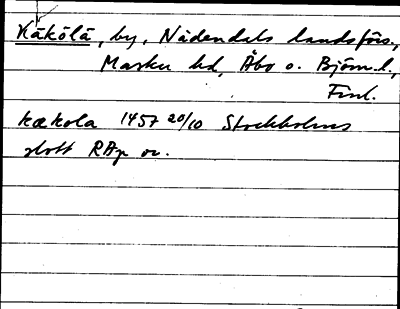 Käkölä, by, Nådendals landsförs.,
Masku hd, Åbo o. Björn. l.,
Finl.
kækola 1457 20/10 Stockholms
slott RAp or.